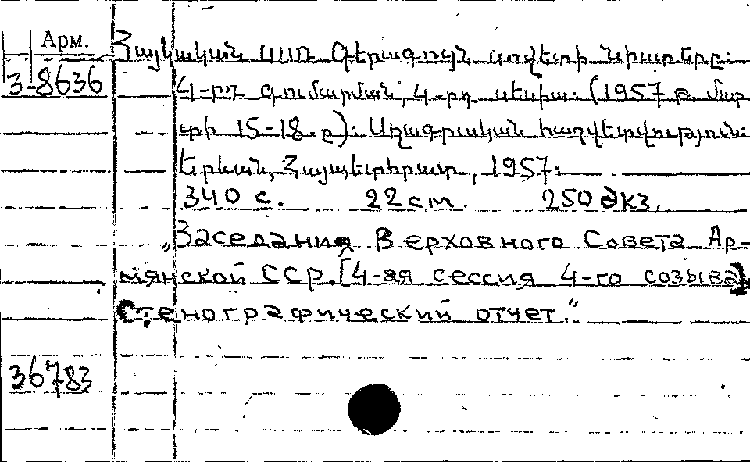 Арм.
3-8636
Հայկական ՍՍՌ Գերագույն սովետի նիստերը:
4-րդ գումարման, 4-րդ սեսիա: (1957 թ. մար
տի 15-18-ը): Սղագրական հաշվետվություն:
Երևան, Հայպետհրատ, 1957:
340 с. 22 cm. 250 экз.
„Заседания Верховного Совета Ар-
мянской ССР. [4-ая сессия 4-го созыва]
Стенографический отчет."
36783